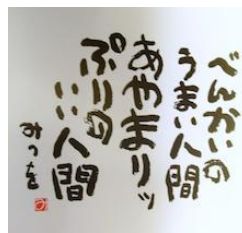 べんかいの
うまい人間
あやまりッ
ぷりの
いい人間
みつを